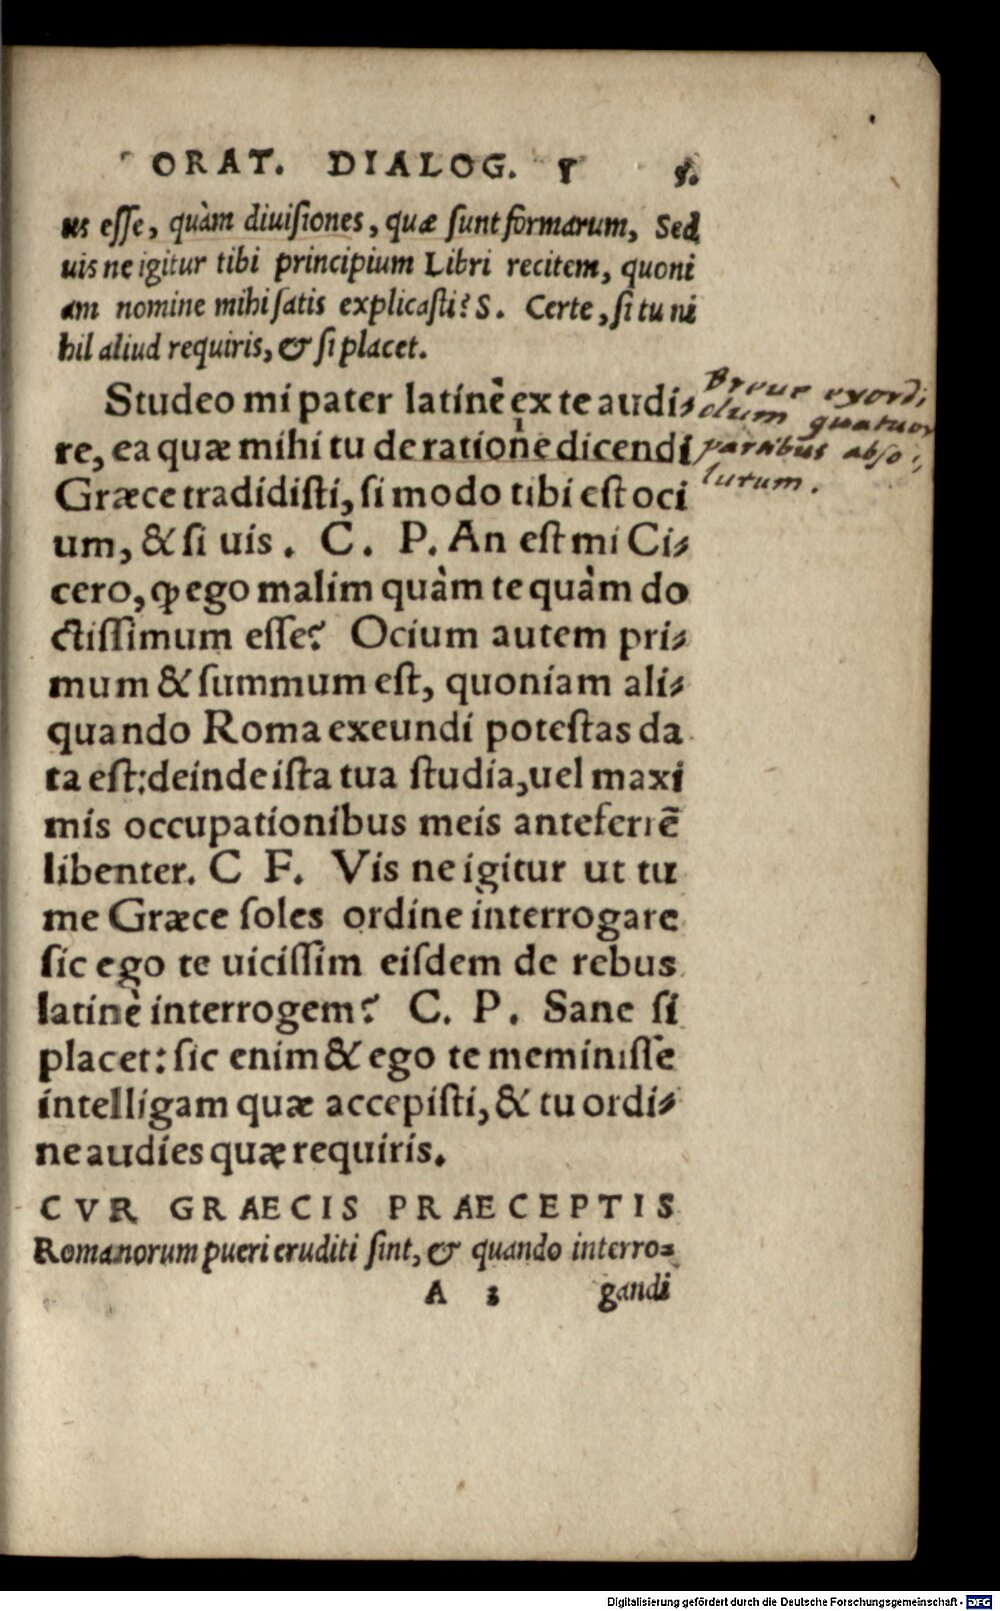 ORAT. DIALOG. I 5.
us esse, quàm diuisiones, quæ sunt formarum, Sed
uis ne igitur tibi principium Libri recitem, quoni
am nomine mihi satis explicasti? S. Certe, si tu ni
hil aliud requiris, & si placet.
Studeo mi pater latinè ex te audi⸗
re, ea quæ mihi tu de ratione dicendi
Græce tradidisti, si modo tibi est oci
um, & si uis. C. P. An est mi Ci⸗
cero, ꝙ ego malim quàm te quàm do
ctissimum esse? Ocium autem pri⸗
mum & summum est, quoniam ali⸗
quando Roma exeundi potestas da
ta est: deinde ista tua studia, uel maxi
mis occupationibus meis anteferrē
libenter. C F. Vis ne igitur ut tu
me Græce soles ordine interrogare
sic ego te uicissim eisdem de rebus
latinè interrogem? C. P. Sane si
placet: sic enim & ego te meminisse
intelligam quæ accepisti, & tu ordi⸗
ne audies quæ requiris.
CVR GRAECIS PRAECEPTIS
Romanorum pueri eruditi sint, & quando interro⸗
A 3 gandi
Breue exordi
olum quatuor
partibus abso⸗
lutum.
Digitalisierung gefördert durch die Deutsche Forschungsgemeinschaft - DFG